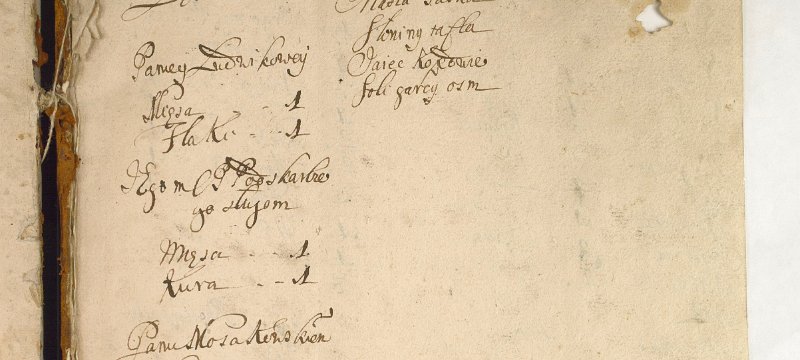 Paniey Ludwikowey
Mięsa - - 1
Flaki - - 1
JEgo m Podskarbie
go sługom
Mięsa - - 1
Kura - - 1
Panu Mosakowskiem
Słoniny tafla
Jaiec kopowie
Soli garcy osm